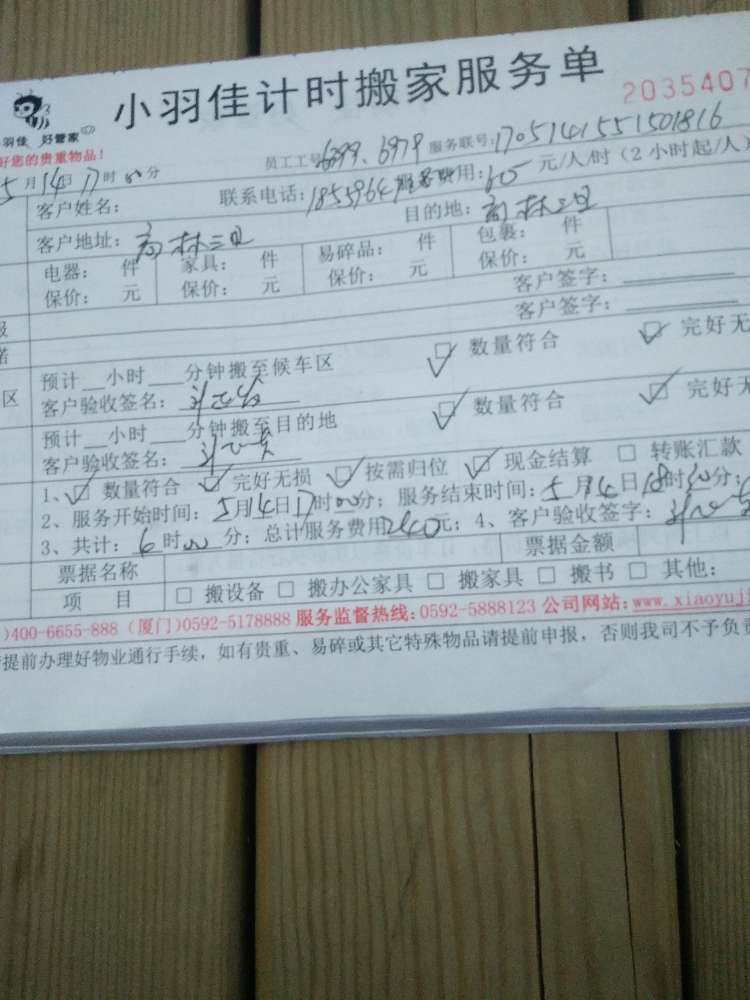 小羽佳计时搬家服务单
2035407
羽佳 好管家
好您的贵重物品!
员工工号6399、6979 服务联号:1705141551501816
5月14日17时00分 联系电话:1855964 服务费用:60元/人/时(2小时起/人)
客户姓名:
客户地址:高林三里 目的地:高林三里
电器: 件 家具: 件 易碎品: 件 包裹: 件
保价: 元 保价: 元 保价: 元 保价: 元
客户签字:
客户签字:
预计__小时___分钟搬至候车区 ☑ 数量符合 ☑ 完好无
区 客户验收签名:
预计__小时___分钟搬至目的地 ☑ 数量符合 ☑ 完好无
客户验收签名:
1、☑ 数量符合 ☑ 完好无损 ☑ 按需归位 ☑ 现金结算 □ 转账汇款
2、服务开始时间:5月14日17时00分;服务结束时间:5月14日18时00分;
3、共计:6时00分;总计服务费用240元;4、客户验收签字:
票据名称 票据金额
项 目 □ 搬设备 □ 搬办公家具 □ 搬家具 □ 搬书 □ 其他:
)400-6655-888 (厦门)0592-5178888 服务监督热线:0592-5888123 公司网站:www.xiaoyuji
提前办理好物业通行手续,如有贵重、易碎或其它特殊物品请提前申报,否则我司不予负责